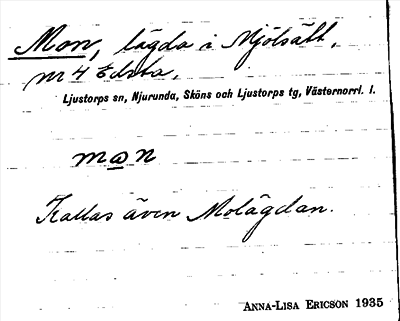 Mon, lägda i Mjölsätt,
m 4 Edsta.
Ljustorps sn, Njurunda, Sköns och Ljustorps tg, Västernorrl. l.
man
Kallas även Molägdan.
ANNA-LISA ERICSON 1935